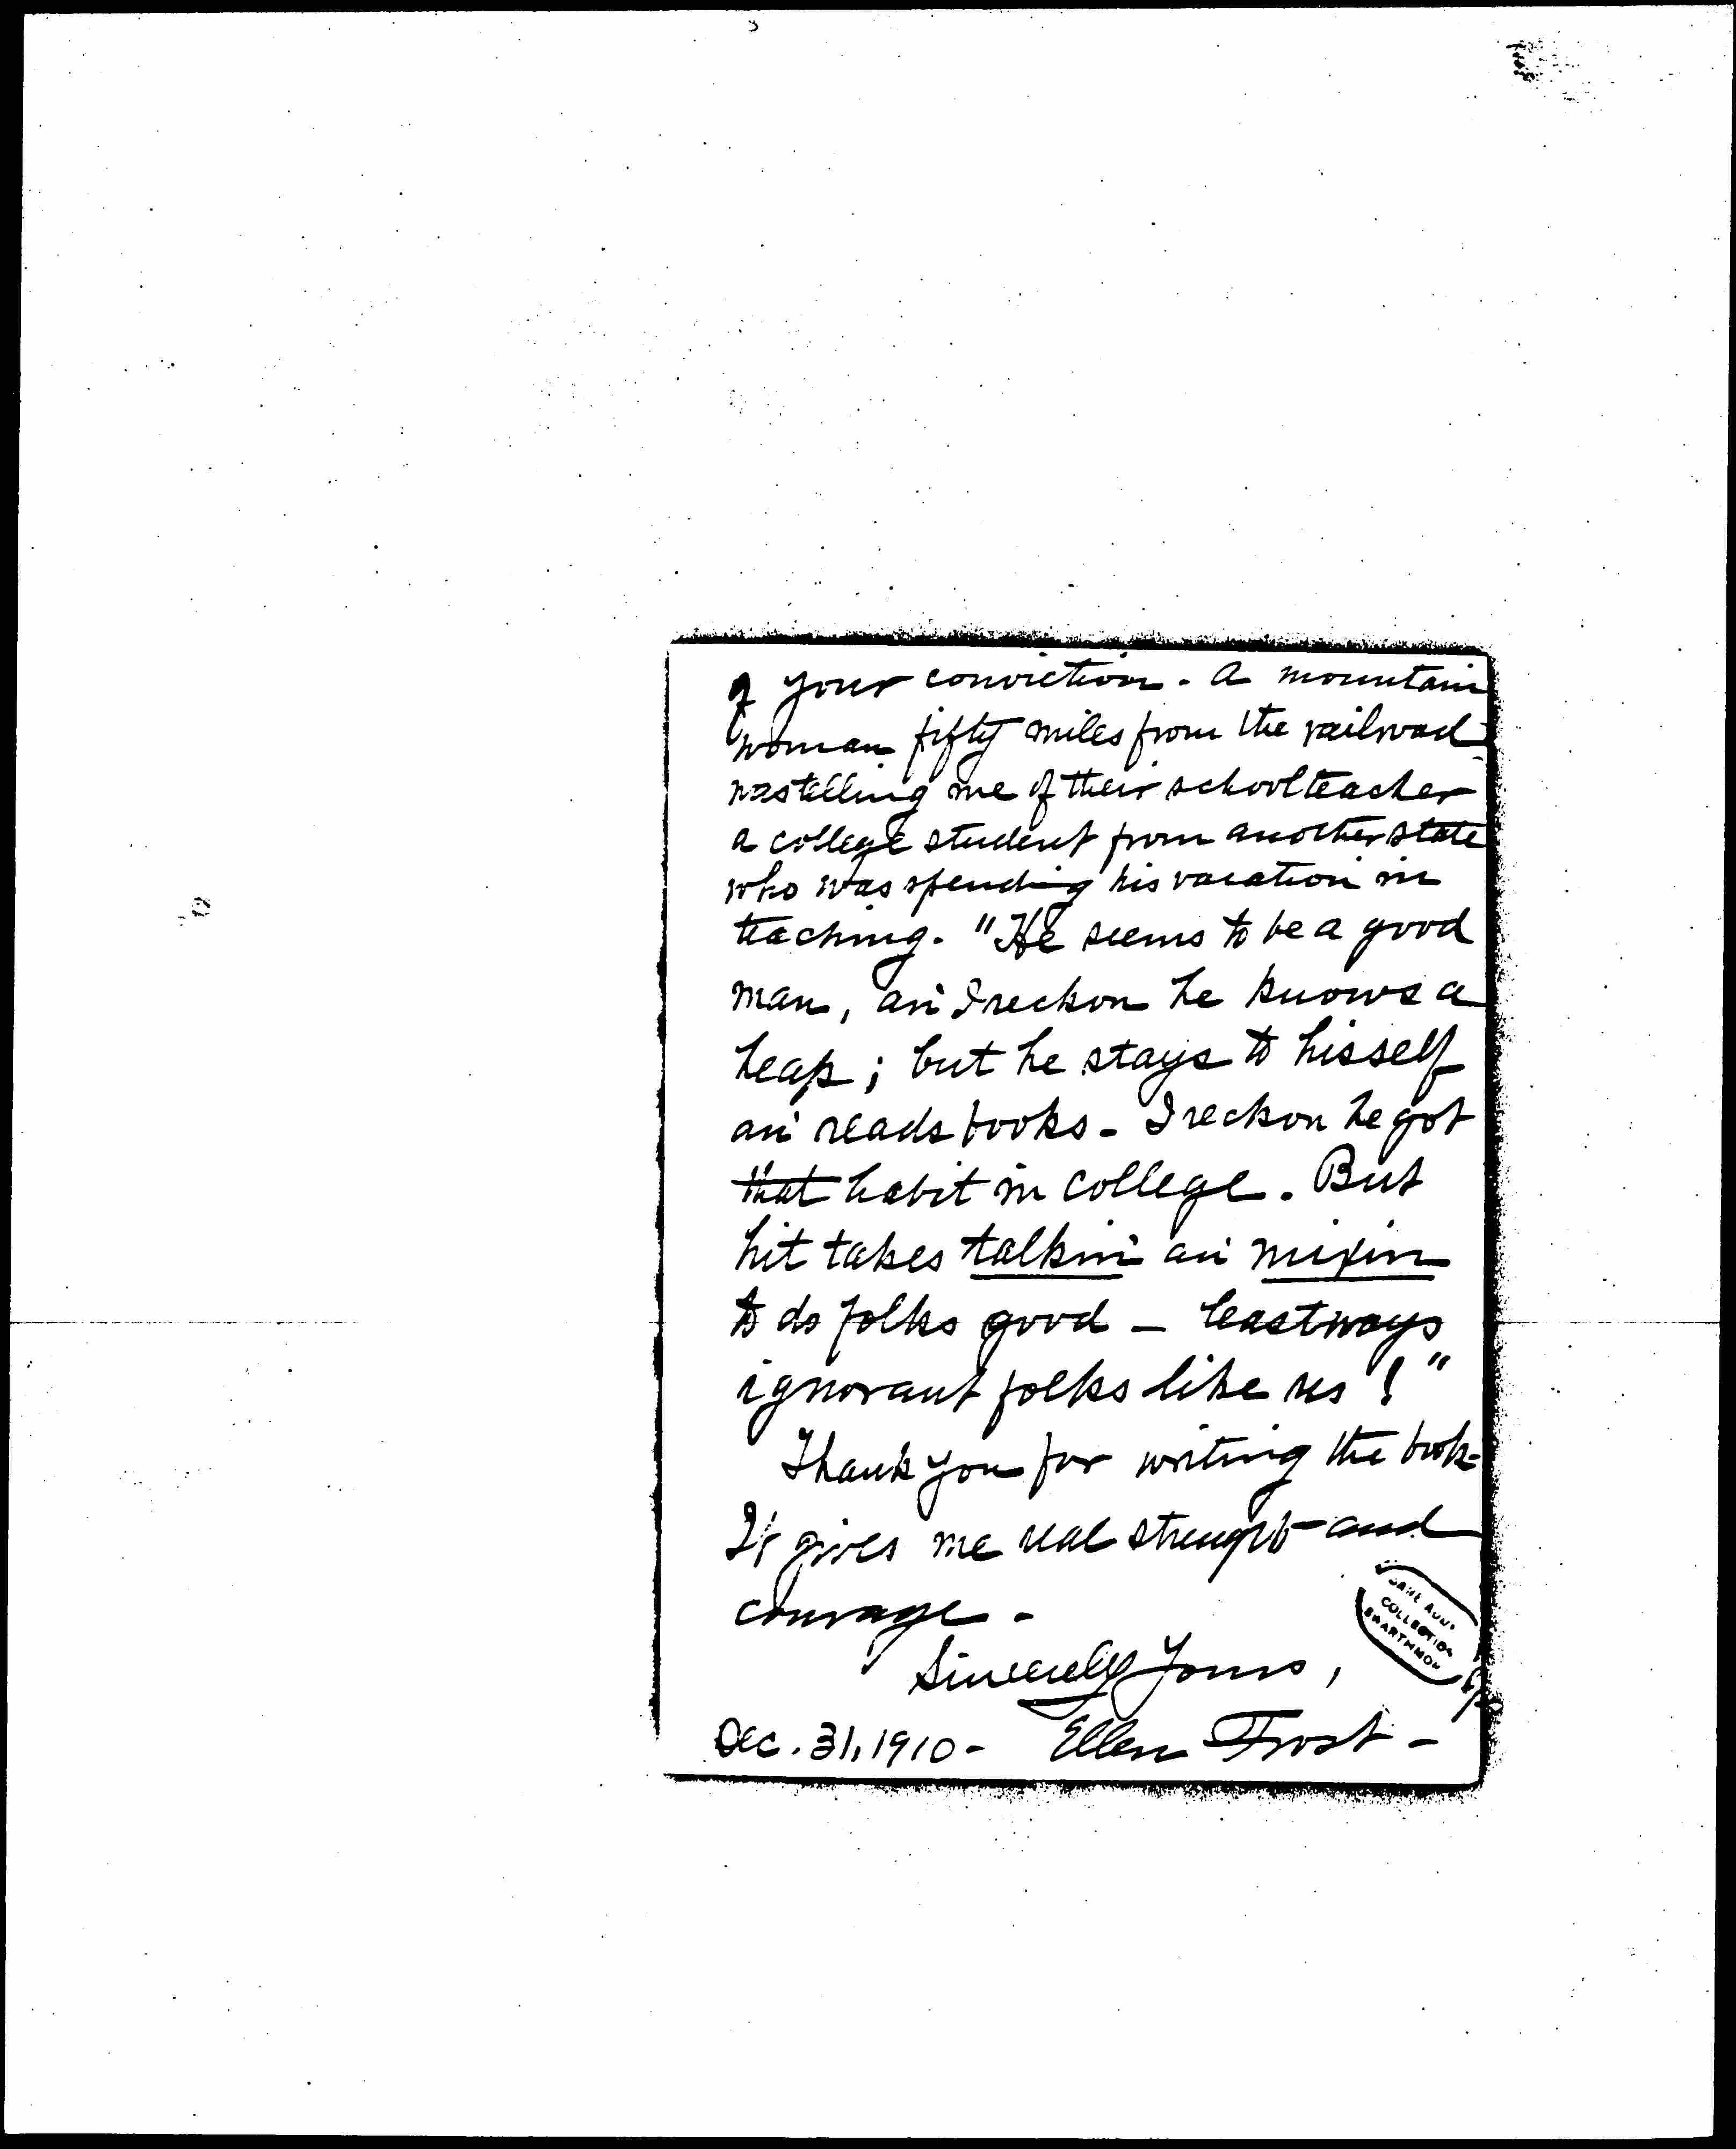 of your conviction. A mountain
woman fifty miles from the railroad
was telling me of their schoolteacher
a college student from another state
who was spending his vacation in
teaching. "He seems to be a good
man, an' I reckon he knows a
heap; but he stays to hisself
an' reads books - I reckon he got
that habit in college. But
hit takes talkin' an' mixin
to do folks good - leastways
ignorant folks like us!"
Thank you for writing the book -
It gives me real strength and
courage -
COLLECTION
SWARTHMOR
Sincerely Yours,
Dec. 31, 1910 - Ellen Frost -